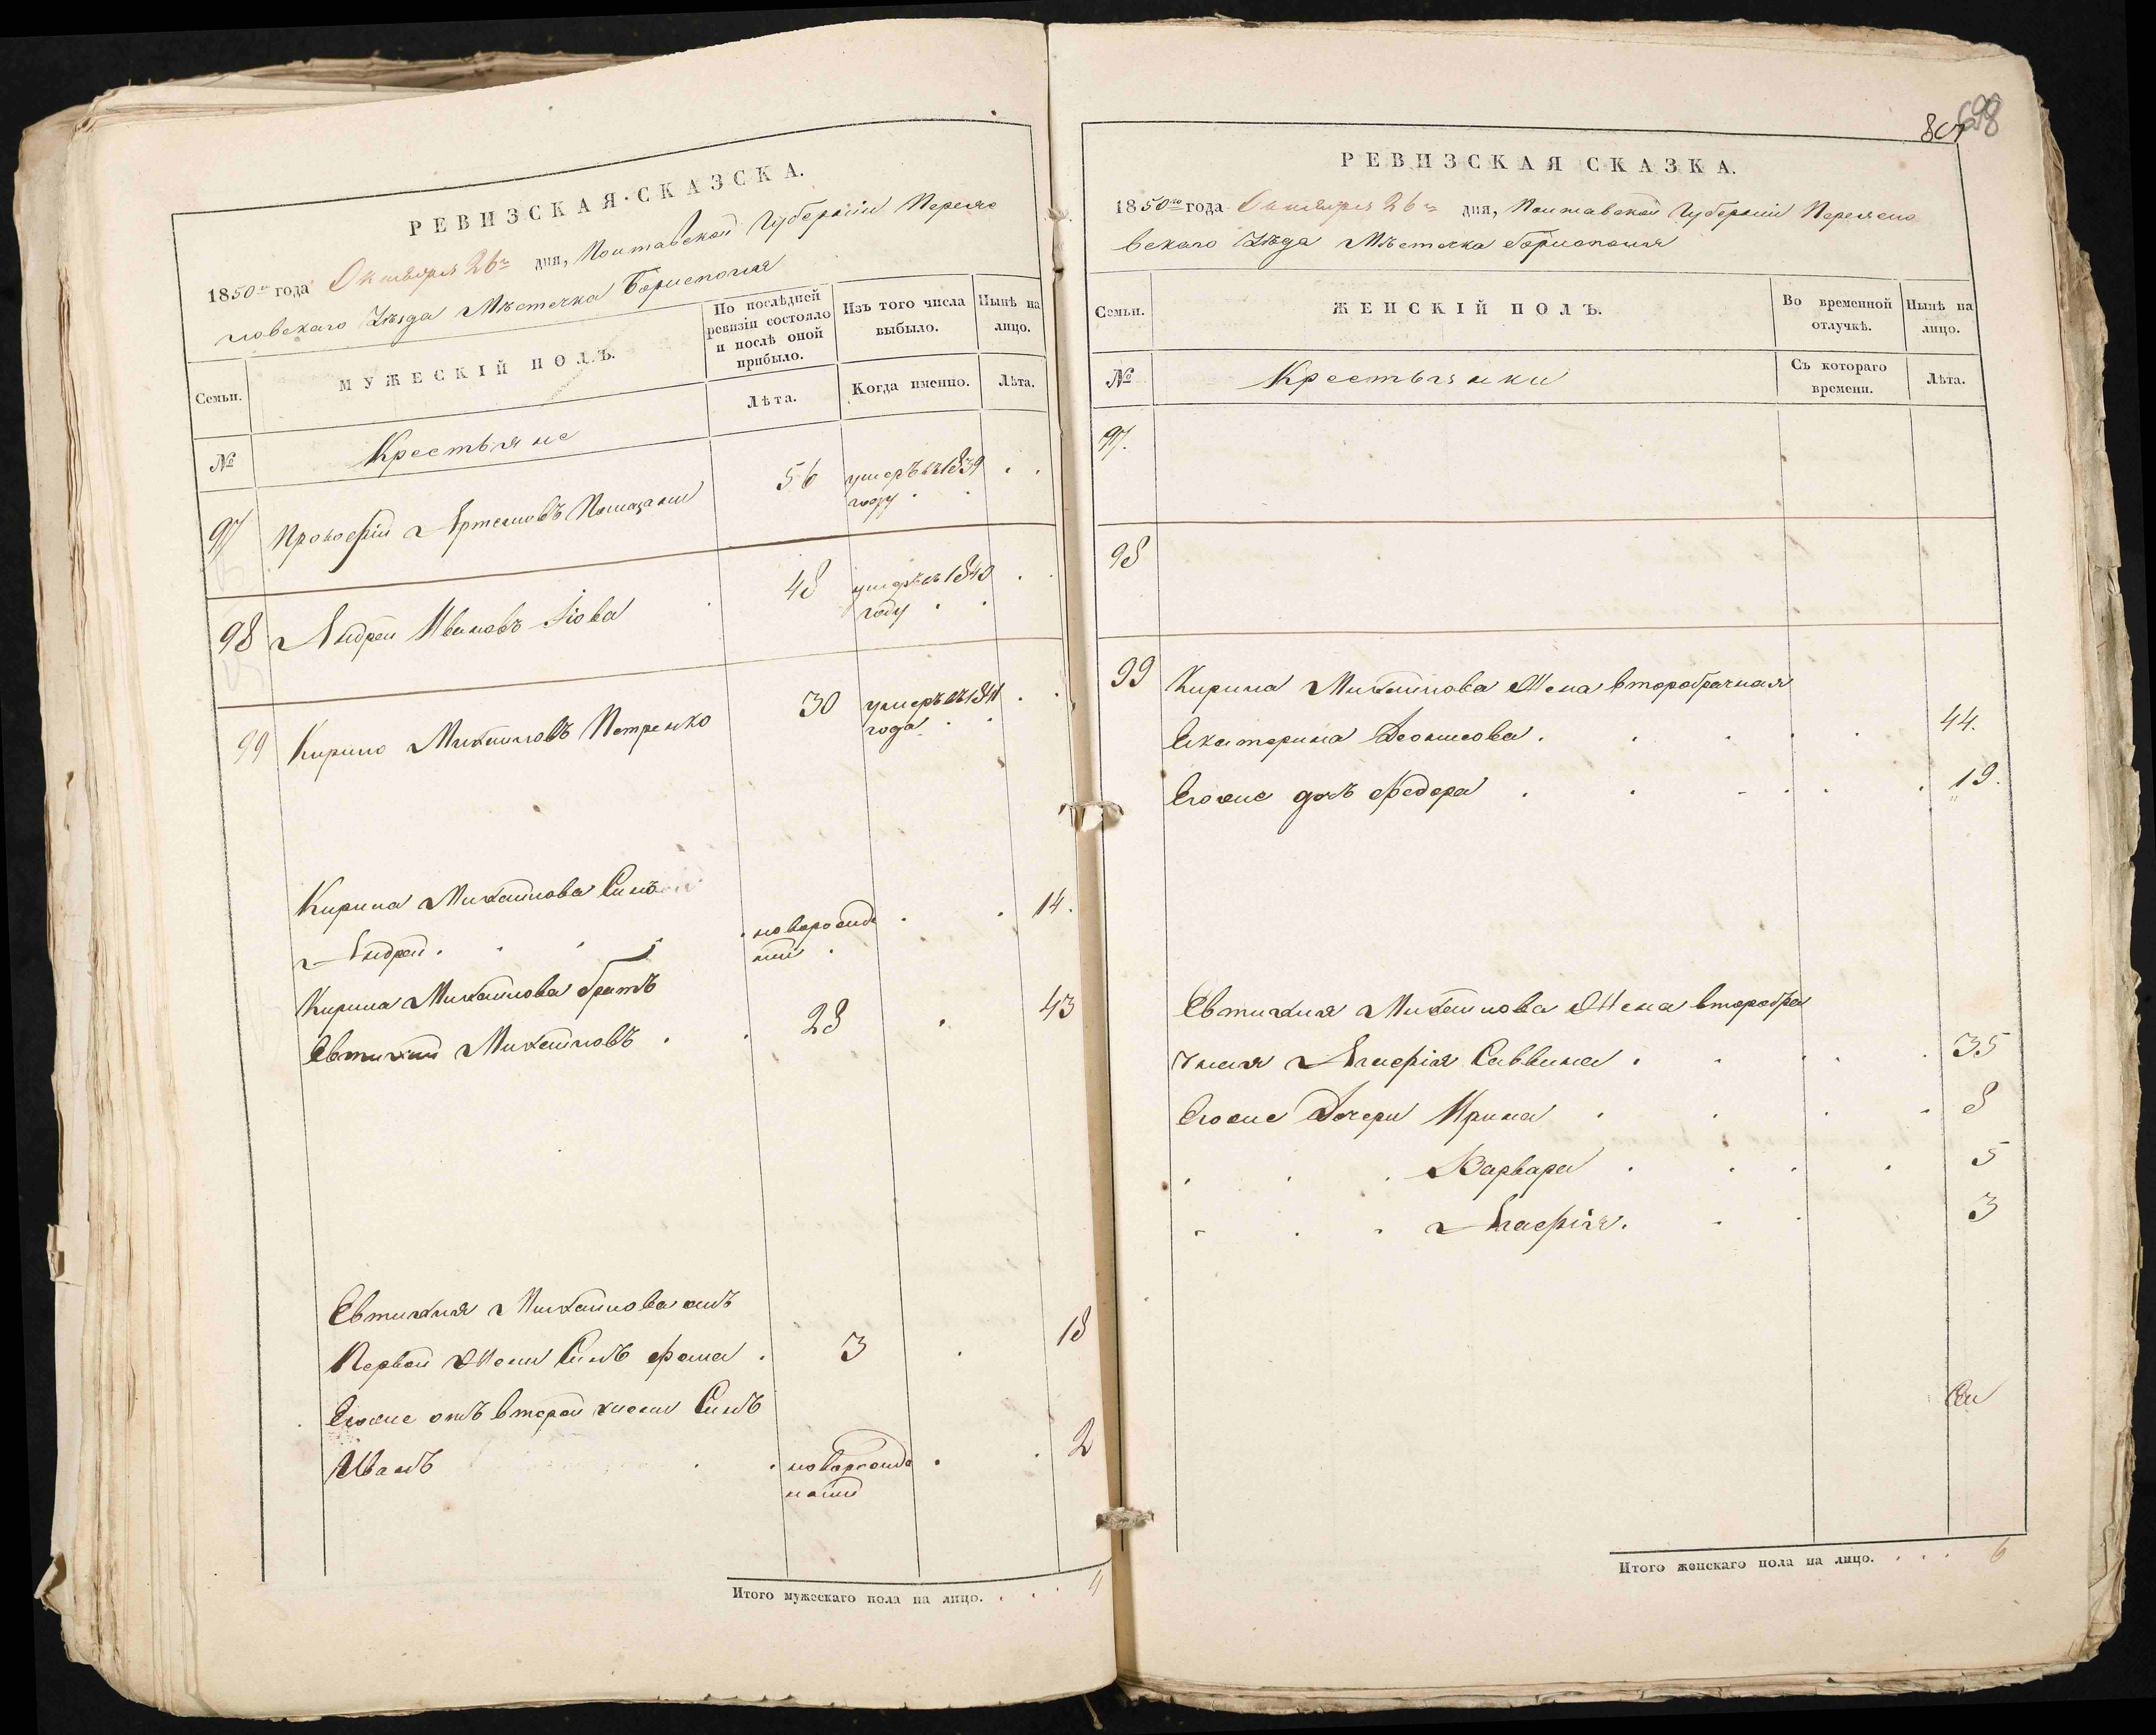 РЕВИЗСКАЯ СКАЗСКА.
1850го года Октября 26го дня, Полтавской Губерніи Переяс
ловскаго Уѣзда Мѣстечка Борисполя
Семьи.
МУЖЕСКІЙ ПОЛЪ.
По послѣдней ревизіи состояло и послѣ оной прибыло.
Изъ того числа выбыло.
Нынѣ на лицо.
№
Крестьяне
Лѣта.
Когда именно.
Лѣта.
97 Прокофій Артемовъ 56 умеръ въ 1839
году
98 Андрей Ивановъ 48 умеръ въ 1840
году
99 Кирило Михайловъ Петренко 30 умеръ въ 1841
года
Кирила Михайлова Синъ
Андрей новорожде 14.
ний
Кирила Михайлова братъ
Евтихій Михайловъ 28 43
Евтихія Михайлова отъ
Первой Жени Синъ Фома 3 18
Егоже отъ второй жени Синъ
Иванъ новорожде 2
ний
Итого мужескаго пола на лицо. 4
807
698
РЕВИЗСКАЯ СКАЗКА.
1850го года Октября 26го дня, Полтавской Губерніи Переясло
вскаго Уѣзда Мѣстечка Борисполя
Семьи.
ЖЕНСКІЙ ПОЛЪ.
Во временной отлучкѣ.
Нынѣ на лицо.
№
Крестьянки
Съ котораго времени.
Лѣта.
97.
98
99 Кирила Михайлова Жена второбрачная
Екатерина Деонисова 44.
Егоже дочь Федора 19.
Евтихія Михайлова Жена второбра
чная Агафія Саввина 35
Егоже Дочери Ирина 8
Варвара 5
Агафія 3
Итого женскаго пола на лицо. 6